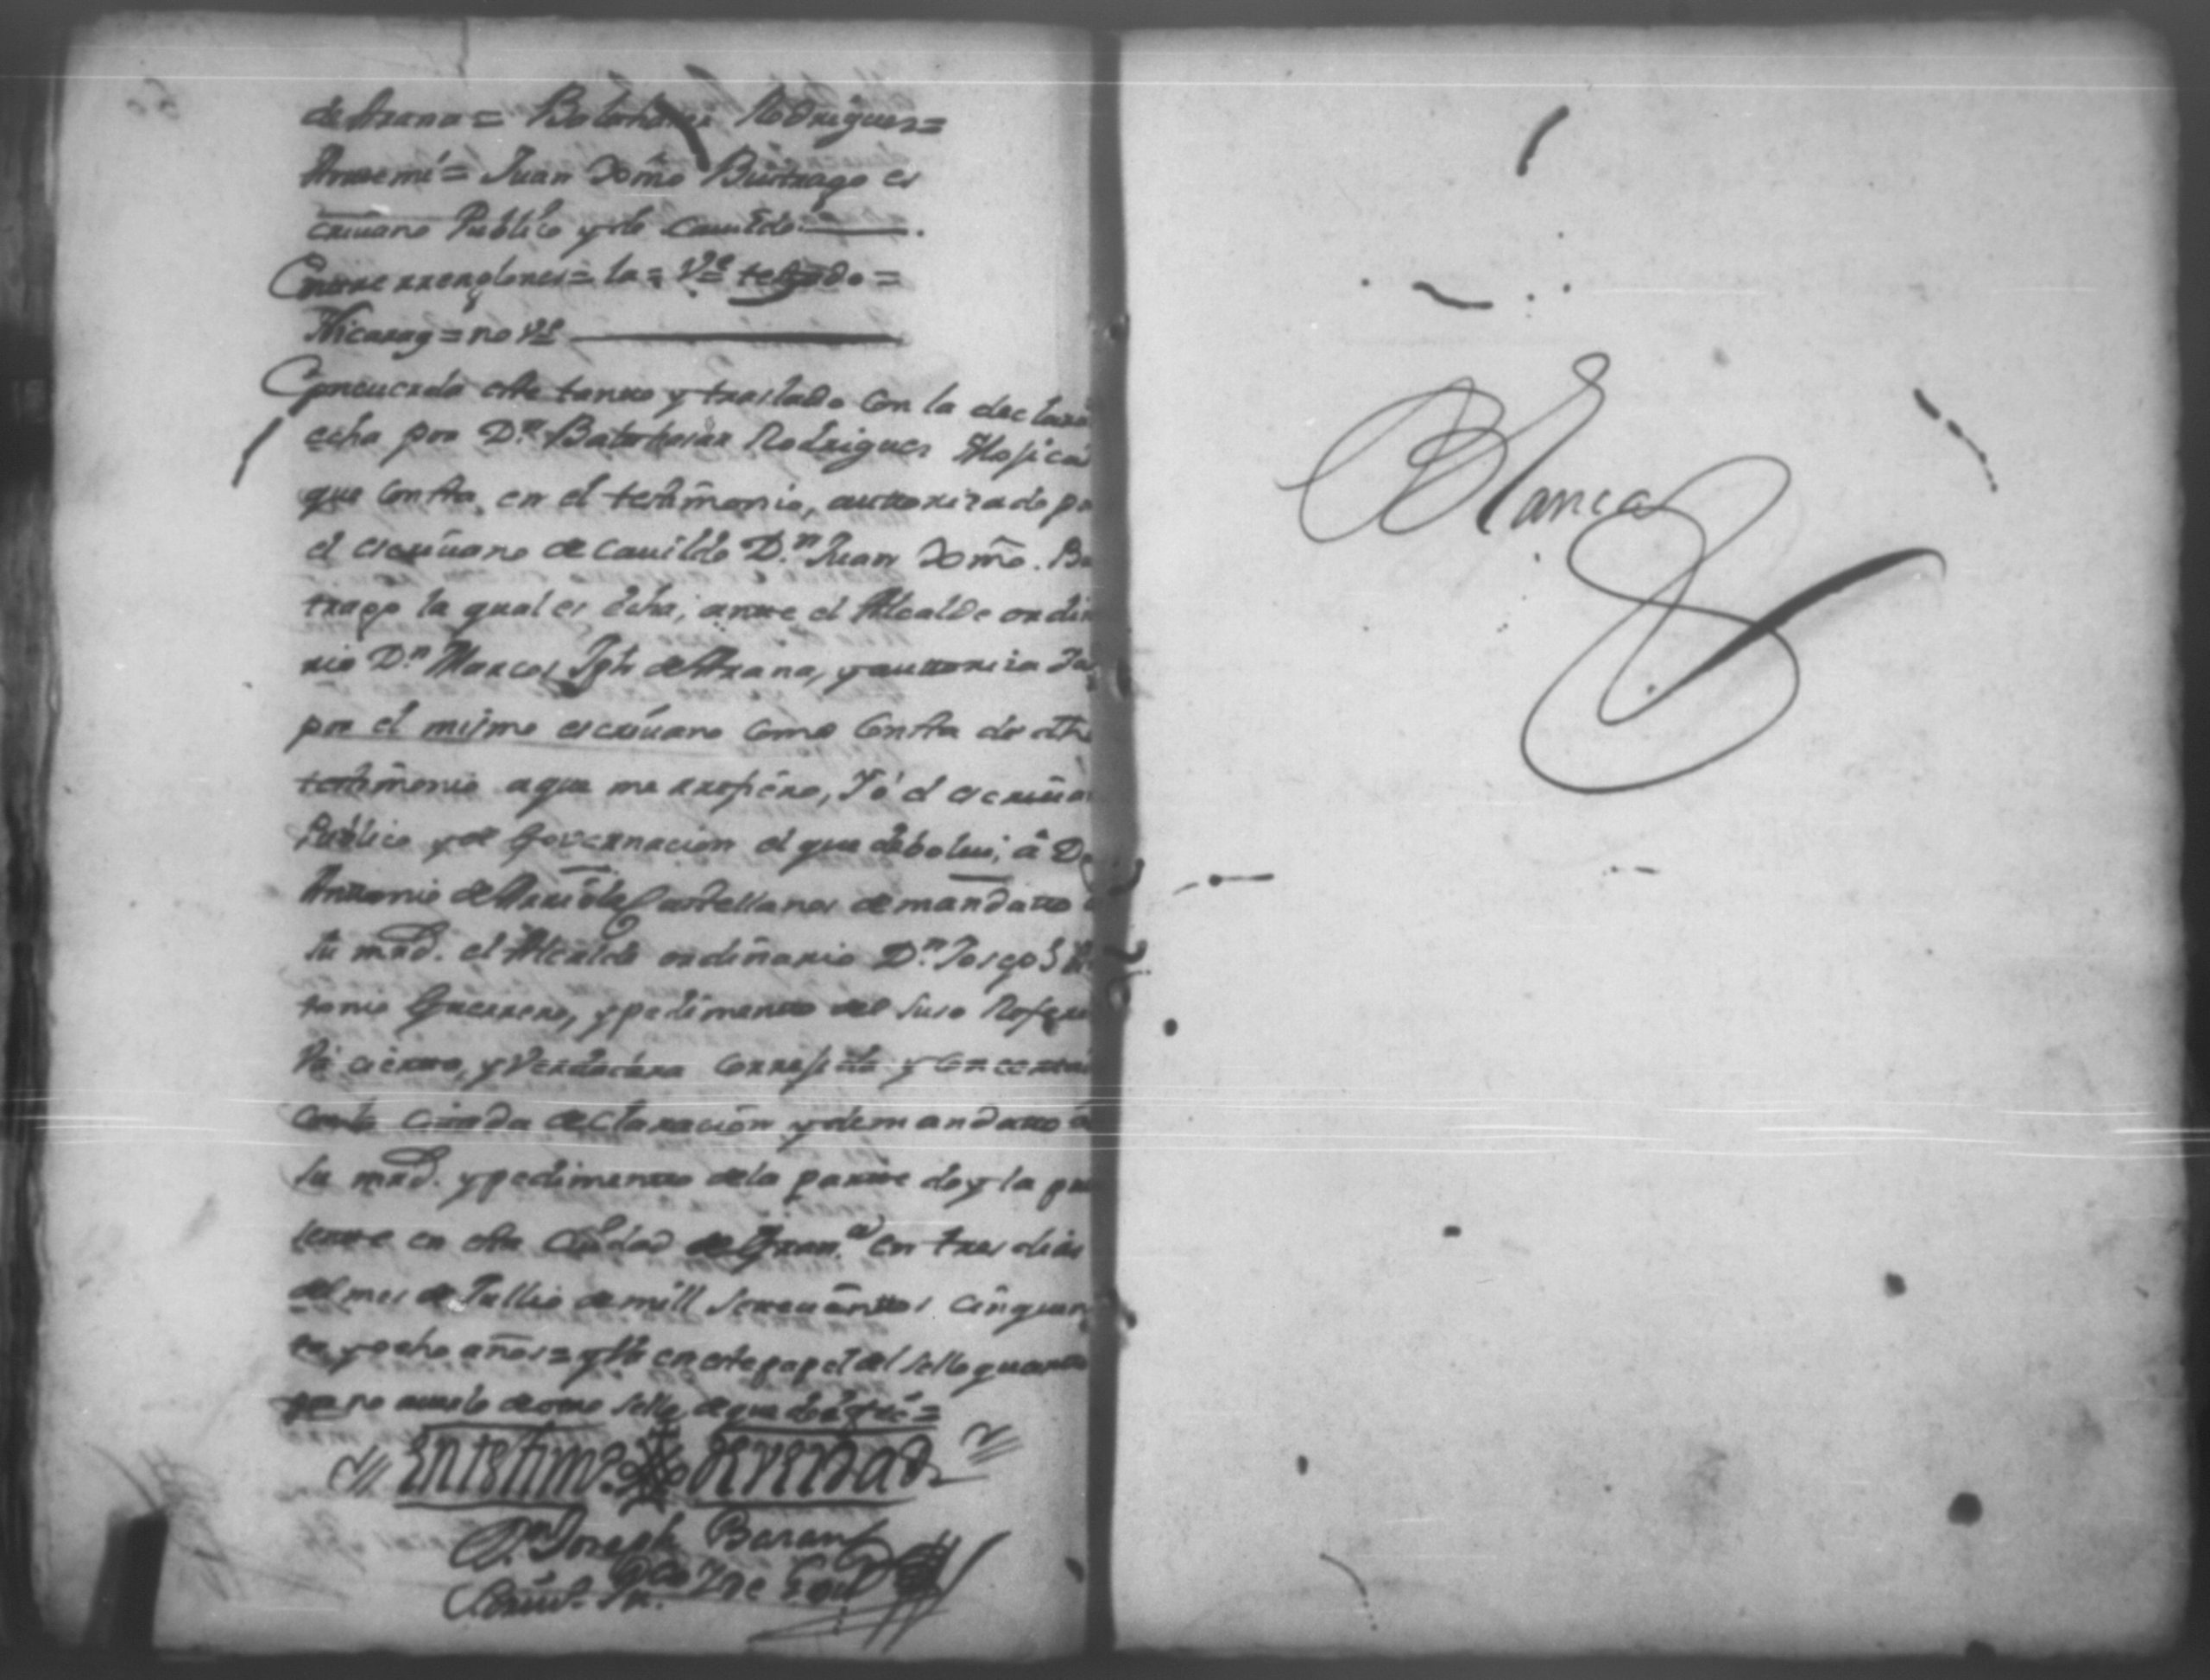 de Arana = Balthasar Rodrigues =
Antte mi = Juan Domo Buitrago es
criuano Publico y de Cauildo
Entre rrenglones = la = Ve testado =
Nicarag = no Ve
Concuerda este tanto y traslado con la declara
echa por Dn Balthasar Rodrigues
que consta, en el testimonio, auttorizado po
el escriuano de Cauildo Dn Juan Domo. Bu
trago la qual es echa, antte el Alcalde ordin
rio Dn Marcos Jph de Arana, y auttorizada
por el mismo escriuano como consta de dho
testimonio a que me rrefiero, Yo el escriuan
Publico y de Governacion el que debolui, a D
Anttonio de Arriola Castellanos de mandatto
su mrd. el Alcalde ordinario Dn Joseph An
tonio Guerrero, y pedimento del suso Refer
Va cierto, y Verdadero Correjido y Concertad
con la citada declaracion y de mandatto
su mrd. y pedimento de la partte doy la pre
sentte en esta Ciudad de Grana en tres dias
del mes de Jullio de mill settecienttos cinquen
ta y ocho años = y Va en este papel del sello quartto
por no auerlo de otro sello, de que doi fee =
En testimo. de verdad
Dn Joseph
Criuo.
Blanca